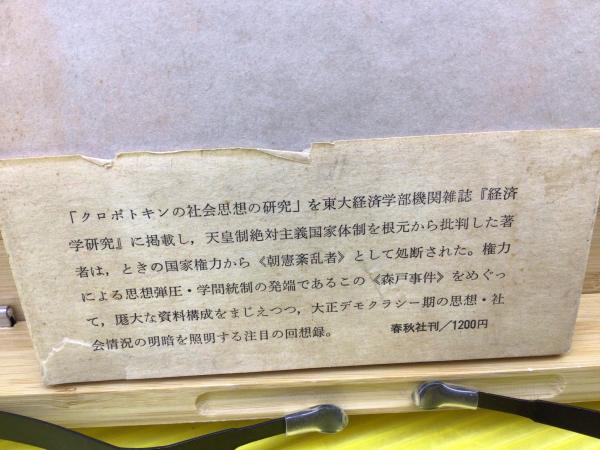 「クロポトキンの社会思想の研究」を東大経済学部機関雑誌『経済
学研究』に掲載し，天皇制絶対主義国家体制を根元から批判した著
者は，ときの国家権力から《朝憲紊乱者》として処断された。権力
による思想弾圧・学問統制の発端であるこの《森戸事件》をめぐっ
て，厖大な資料構成をまじえつつ，大正デモクラシー期の思想・社
会情況の明暗を照明する注目の回想録。
春秋社刊／1200円